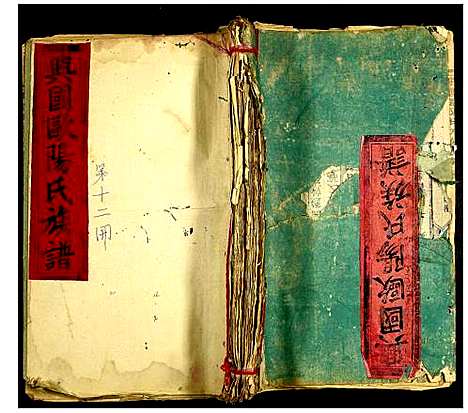 興國歐陽氏族譜
第十二開
興國歐陽氏族譜